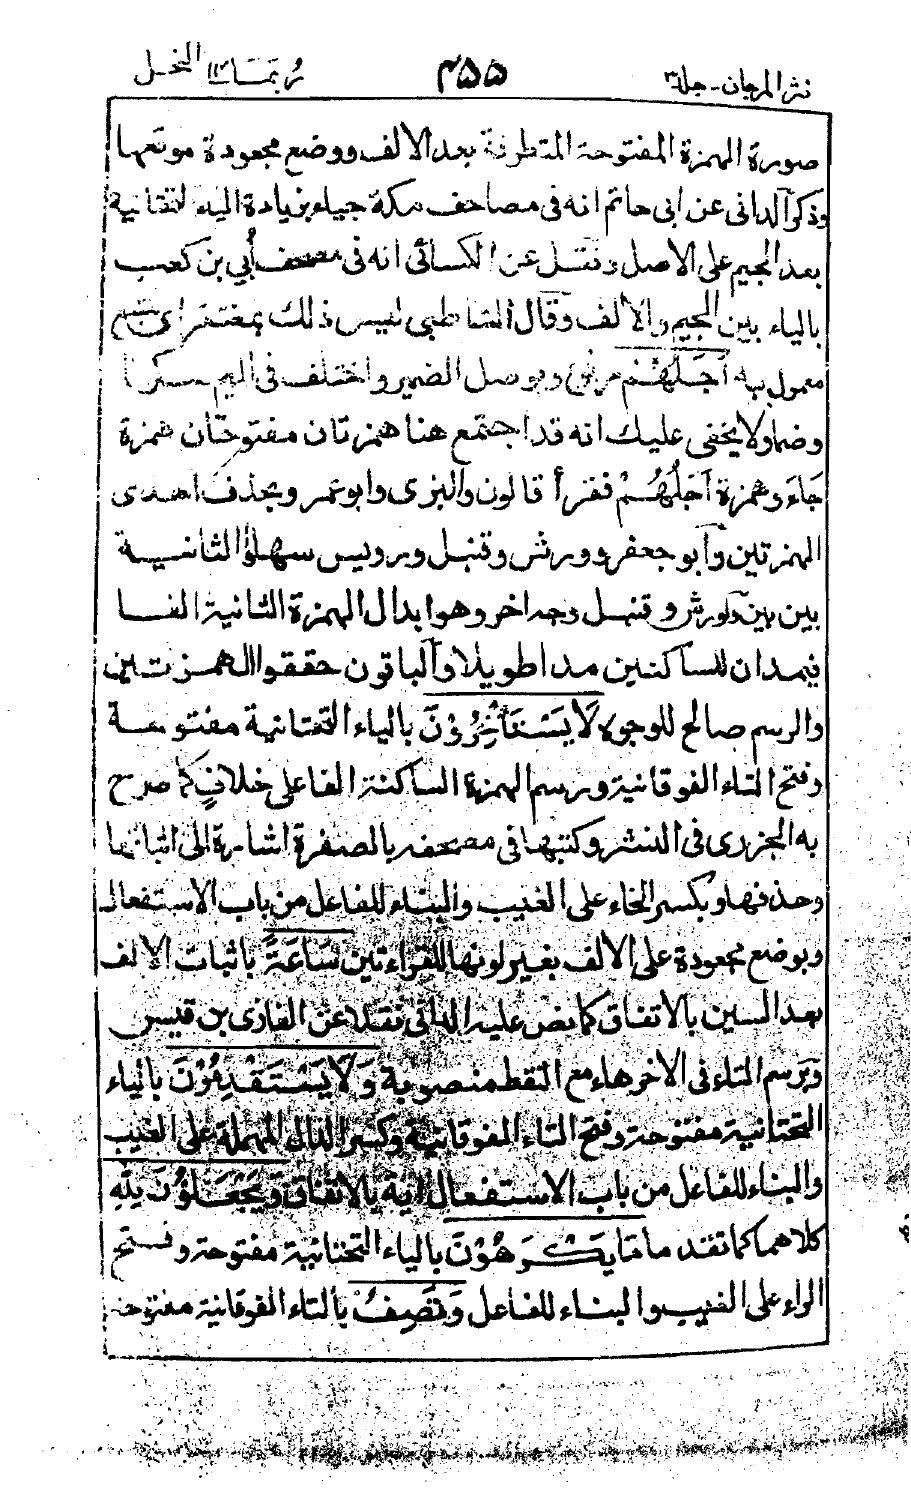 نثر المرجان - جلد ٣
٤٥٥
ربما ١٤ النحل
صورة الهمزة المفتوحة المتطرفة بعد الالف ووضع مجعودة موقعها
وذكر الدانى عن ابى حاتم انه فى مصاحف مكة جياء بزيادة الياء التحتانية
بعد الجيم على الاصل ونقل عن الكسائى انه فى مصحف أُبي بن كعب
بالياء بين الجيم والالف وقال الشاطبى ليس ذلك بمفتقر اى بشئ
معمول به اَجَلُهُمْ مرفوع وبوصل الضمير واختلف فى الميم سكونا
وضما ولا يخفى عليك انه قد اجتمع هنا همزتان مفتوحتان همزة
جَاءَ وهمزة اَجَلُهُمْ فقرأ قالون والبزى وابو عمرو بحذف احدى
الهمزتين وابو جعفر وورش وقنبل ورويس سهلوا الثانية
بين بين ولورش وقنبل وجه اخر وهو ابدال الهمزة الثانية الفا
فيمدان للساكنين مدا طويلا والباقون حققوا الهمزتين
والرسم صالح للوجوه لَا يَسْتَأْخِرُوْنَ بالياء التحتانية مفتوحة
وفتح التاء الفوقانية ورسم الهمزة الساكنة الفا على خلاف كما صرح
به الجزرى فى النشر وكتبها فى مصحفه بالصفرة اشارة الى اثباتها
وحذفها وبكسر الخاء على الغيب والبناء للفاعل من باب الاستفعال
وبوضع مجعودة على الالف بغير لونها للقراءتين سَاعَةً باثبات الالف
بعد السين بالاتفاق كما نص عليه الدانى نقلا عن الغازى بن قيس
وبرسم التاء فى الاخر هاء مع النقط منصوبة وَلَا يَسْتَقْدِمُوْنَ بالياء
التحتانية مفتوحة وفتح التاء الفوقانية وكسر الدال المهملة على الغيب
والبناء للفاعل من باب الاستفعال اية بالاتفاق وَيَجْعَلُوْنَ لِلّٰهِ
كلاهما كما تقدم مَا يَكْرَهُوْنَ بالياء التحتانية مفتوحة وفتح
الراء على الغيب والبناء للفاعل وَتَصِفُ بالتاء الفوقانية مفتوحة